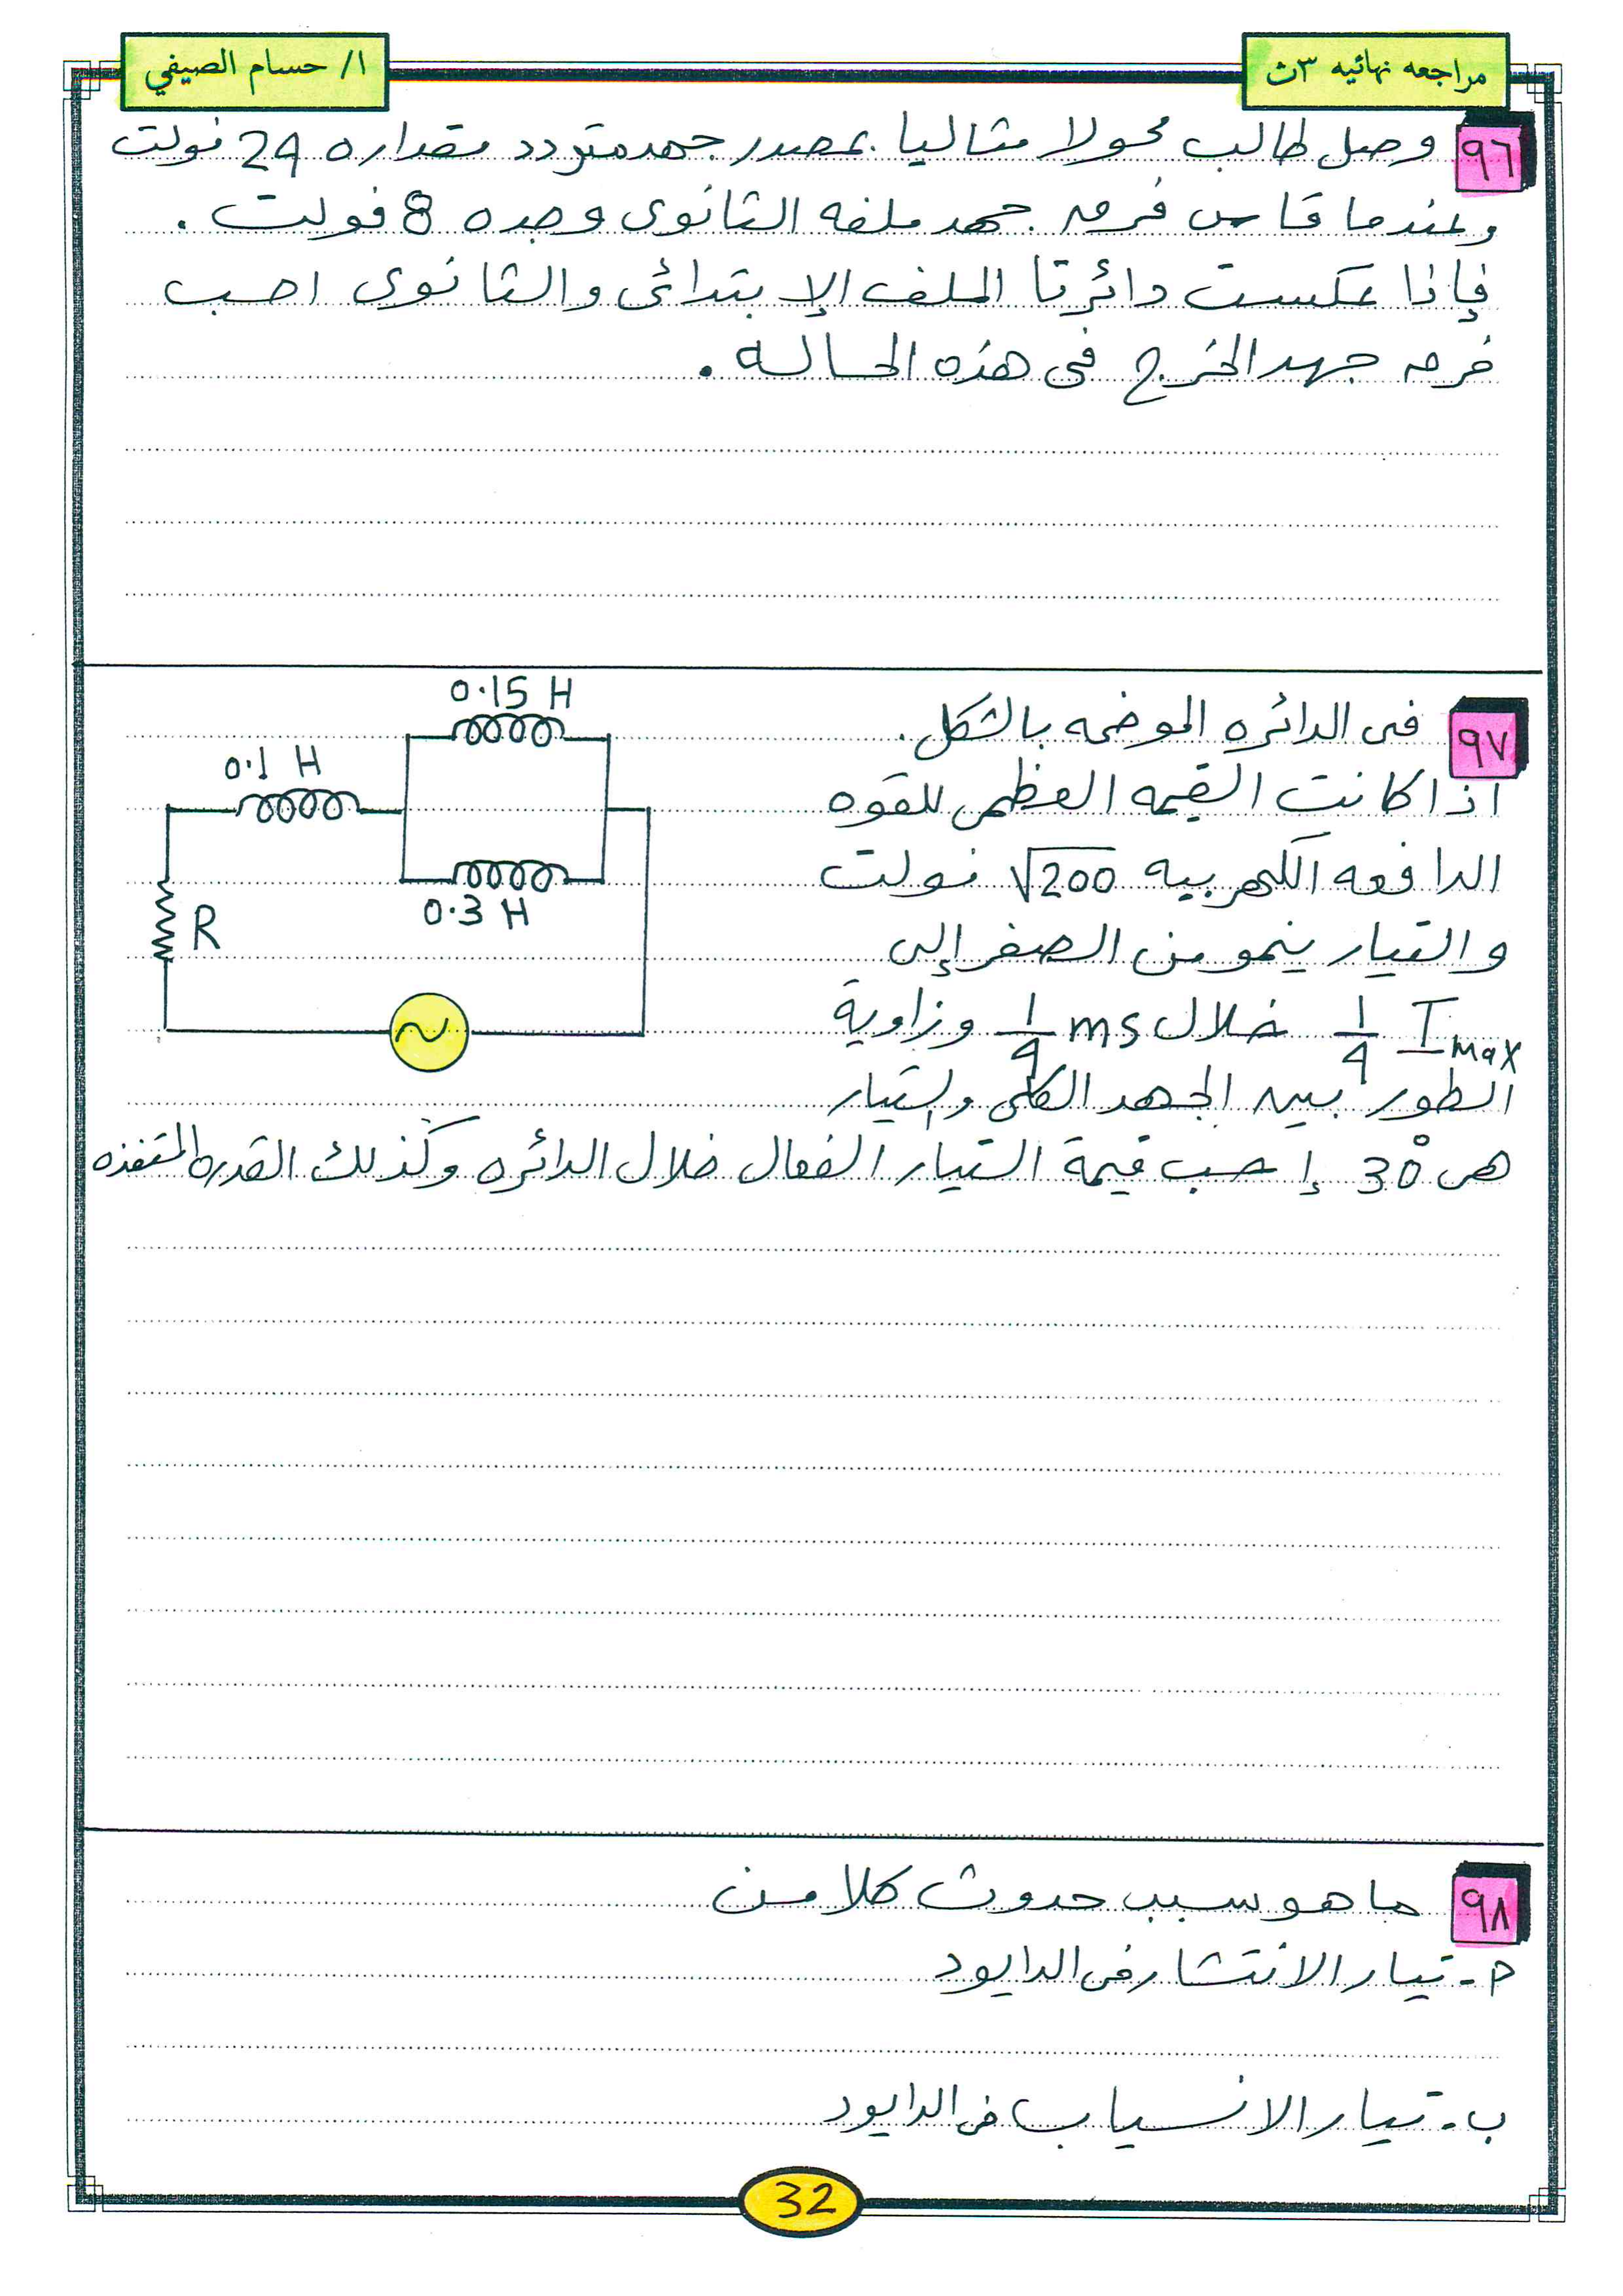 مراجعه نهائيه ٣ث
ا/ حسام الصيفي
٩٦ وصل طالب محولا مثاليا بمصدر جهد متردد مقداره 24 فولت
وعندما قاس فرق جهد ملفه الثانوى وجده 8 فولت .
فإذا عكست دائرتا الملف الإبتدائى والثانوى احسب
فرق جهد الخرج فى هذه الحاله .
٩٧ فى الدائره الموضحه بالشكل .
اذا كانت القيمه العظمى للقوه
الدافعه الكهربيه √200 فولت
والتيار ينمو من الصفر إلى
1/4 I Max خلال 1/4 ms وزاوية
الطور بين الجهد الكلى والتيار
هى 30° إحسب قيمة التيار الفعال خلال الدائره وكذلك القدره المستنفذه
0.15 H
0.1 H
0.3 H
R
٩٨ ما هو سبب حدوث كلا من
م - تيار الانتشار فى الدايود
ب - تيار الانسياب فى الدايود
32